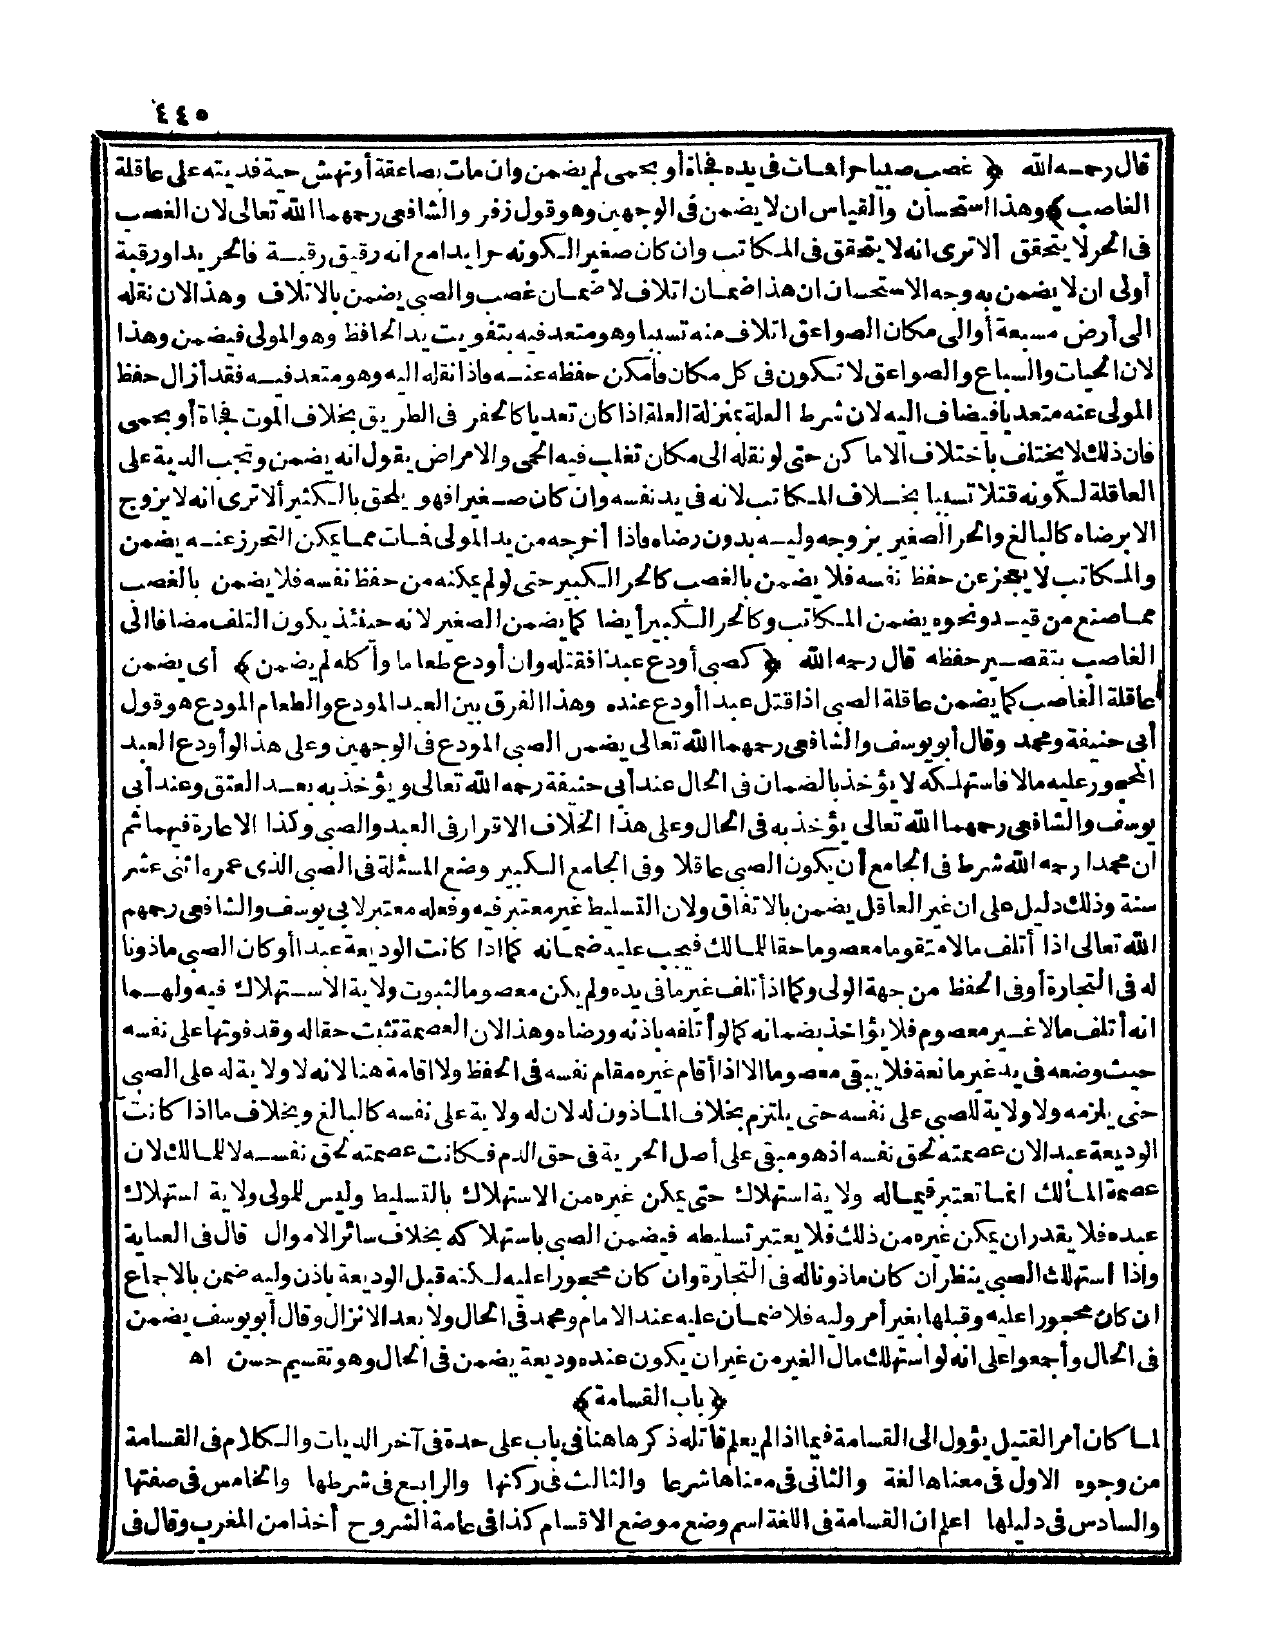 ٤٤٥
قال رحمه الله ﴿ غصب صبيا حرا فمات فى يده فجأة أو بحمى لم يضمن وان مات بصاعقة أو نهش حية فديته على عاقلة
الغاصب ﴾ وهذا استحسان والقياس ان لا يضمن فى الوجهين وهو قول زفر والشافعى رحمهما الله تعالى لان الغصب
فى الحر لا يتحقق ألا ترى انه لا يتحقق فى المكاتب وان كان صغيرا لكونه حرا يدا مع انه رقيق رقبة فالحر يدا ورقبة
أولى ان لا يضمن به وجه الاستحسان ان هذا ضمان اتلاف لا ضمان غصب والصبى يضمن بالاتلاف وهذا لان نقله
الى أرض مسبعة أو الى مكان الصواعق اتلاف منه تسببا وهو متعد فيه بتفويت يد الحافظ وهو المولى فيضمن وهذا
لان الحيات والسباع والصواعق لا تكون فى كل مكان فأمكن حفظه عنه فاذا نقله اليه وهو متعد فيه فقد أزال حفظ
المولى عنه متعديا فيضاف اليه لان شرط العلة بمنزلة العلة اذا كان تعديا كالحفر فى الطريق بخلاف الموت فجأة أو بحمى
فان ذلك لا يختلف باختلاف الاماكن حتى لو نقله الى مكان تغلب فيه الحمى والامراض يقول انه يضمن وتجب الدية على
العاقلة لكونه قتلا تسببا بخلاف المكاتب لانه فى يد نفسه وان كان صغيرا فهو يلحق بالكثير ألا ترى انه لا يزوج
الا برضاه كالبالغ والحر الصغير يزوجه وليه بدون رضاه فاذا أخرجه من يد المولى فات مما يمكن التحرز عنه يضمن
والمكاتب لا يعجز عن حفظ نفسه فلا يضمن بالغصب كالحر الكبير حتى لو لم يمكنه من حفظ نفسه فلا يضمن بالغصب
مما صنع من قيد ونحوه يضمن المكاتب وكالحر الكبير أيضا كما يضمن الصغير لانه حينئذ يكون التلف مضافا الى
الغاصب بتقصير حفظه قال رحمه الله ﴿ كصبى أودع عبدا فقتله وان أودع طعاما وأكله لم يضمن ﴾ أى يضمن
عاقلة الغاصب كما يضمن عاقلة الصبى اذا قتل عبدا أودع عنده وهذا الفرق بين العبد المودع والطعام المودع هو قول
أبى حنيفة ومحمد وقال أبو يوسف والشافعى رحمهما الله تعالى يضمن الصبى المودع فى الوجهين وعلى هذا لو أودع العبد
المحجور عليه مالا فاستهلكه لا يؤخذ بالضمان فى الحال عند أبى حنيفة رحمه الله تعالى ويؤخذ به بعد العتق وعند أبى
يوسف والشافعى رحمهما الله تعالى يؤخذ به فى الحال وعلى هذا الخلاف الاقرار فى العبد والصبى وكذا الاعارة فيهما ثم
ان محمدا رحمه الله شرط فى الجامع أن يكون الصبى عاقلا وفى الجامع الكبير وضع المسئلة فى الصبى الذى عمره اثنى عشر
سنة وذلك دليل على ان غير العاقل يضمن بالاتفاق ولان التسليط غير معتبر فيه وفعله معتبر لابى يوسف والشافعى رحمهم
الله تعالى اذا أتلف مالا متقوما معصوما حقا للمالك فيجب عليه ضمانه كما اذا كانت الوديعة عبدا أو كان الصبى ماذونا
له فى التجارة أو فى الحفظ من جهة الولى وكما اذا أتلف غير ما فى يده ولم يكن معصوما لثبوت ولاية الاستهلاك فيه ولهما
انه أتلف مالا غير معصوم فلا يؤاخذ بضمانه كما لو أتلفه باذنه ورضاه وهذا لان العصمة تثبت حقا له وقد فوتها على نفسه
حيث وضعه فى يد غير مانعة فلا يبقى معصوما الا اذا أقام غيره مقام نفسه فى الحفظ ولا اقامة هنا لانه لا ولاية له على الصبى
حتى يلزمه ولا ولاية للصبى على نفسه حتى يلتزم بخلاف الماذون له لان له ولاية على نفسه كالبالغ وبخلاف ما اذا كانت
الوديعة عبدا لان عصمته لحق نفسه اذ هو مبقى على أصل الحرية فى حق الدم فكانت عصمته لحق نفسه لا للمالك لان
عصمة المالك انما تعتبر فيما له ولاية استهلاك حتى يمكن غيره من الاستهلاك بالتسليط وليس للمولى ولاية استهلاك
عبده فلا يقدر ان يمكن غيره من ذلك فلا يعتبر تسليطه فيضمن الصبى باستهلاكه بخلاف سائر الاموال قال فى العناية
واذا استهلك الصبى ينظر ان كان ماذونا له فى التجارة وان كان محجورا عليه لكنه قبل الوديعة باذن وليه ضمن بالاجماع
ان كان محجورا عليه وقبلها بغير أمر وليه فلا ضمان عليه عند الامام ومحمد فى الحال ولا بعد الانزال وقال أبو يوسف يضمن
فى الحال وأجمعوا على انه لو استهلك مال الغير من غير ان يكون عنده وديعة يضمن فى الحال وهو تقسيم حسن اه
﴿ باب القسامة ﴾
لما كان أمر القتيل يؤول الى القسامة فيما اذا لم يعلم قاتله ذكرها هنا فى باب على حدة فى آخر الديات والكلام فى القسامة
من وجوه الاول فى معناها لغة والثانى فى معناها شرعا والثالث فى ركنها والرابع فى شرطها والخامس فى صفتها
والسادس فى دليلها اعلم ان القسامة فى اللغة اسم وضع موضع الاقسام كذا فى عامة الشروح أخذا من المغرب وقال فى